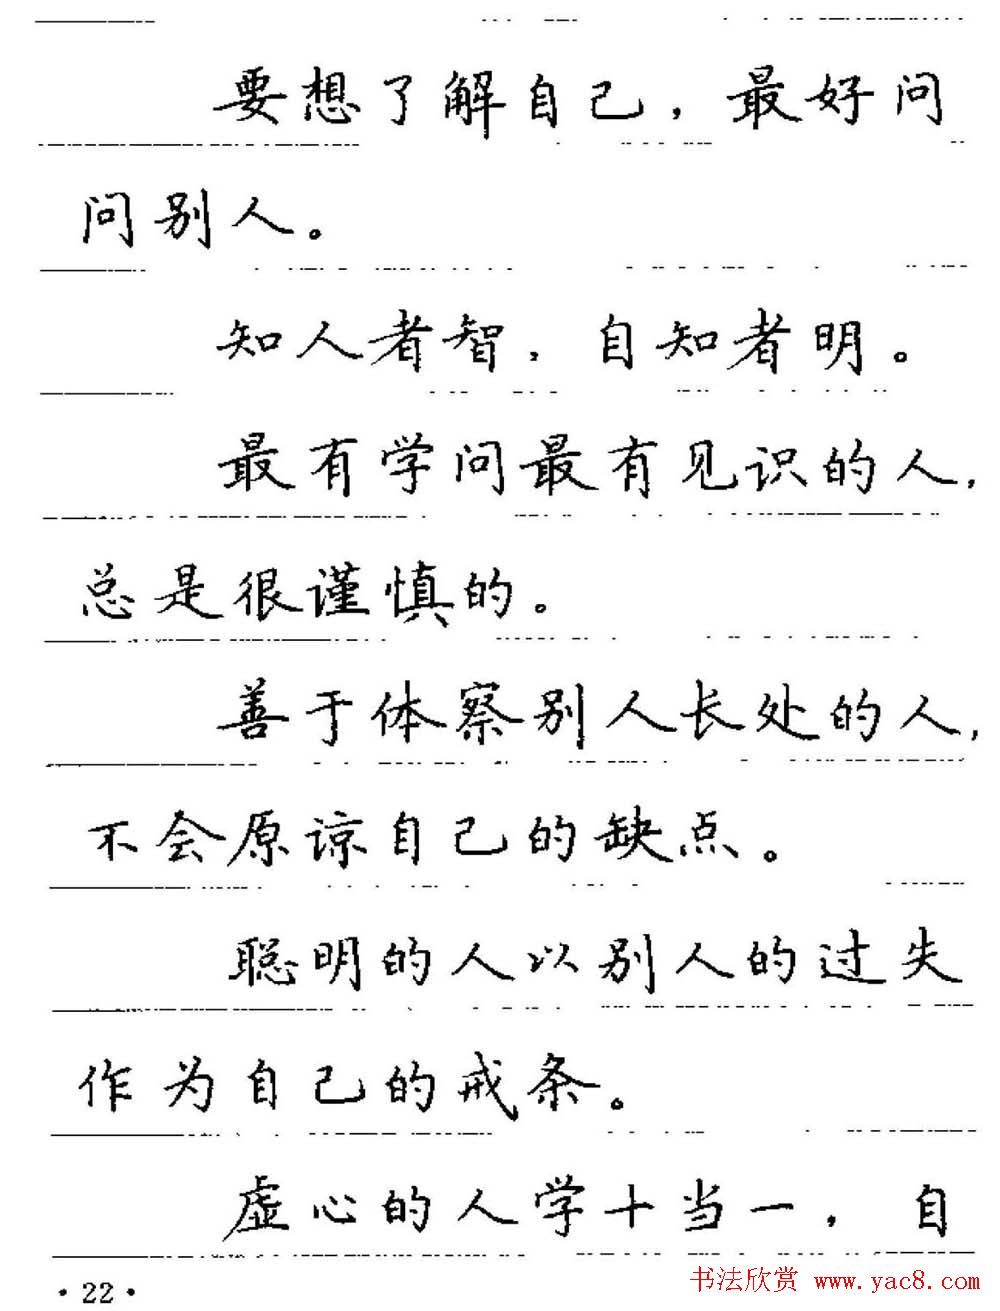 要想了解自己，最好问
问别人。
知人者智，自知者明。
最有学问最有见识的人，
总是很谨慎的。
善于体察别人长处的人，
不会原谅自己的缺点。
聪明的人以别人的过失
作为自己的戒条。
虚心的人学十当一，自
·22·
书法欣赏 www.yac8.com